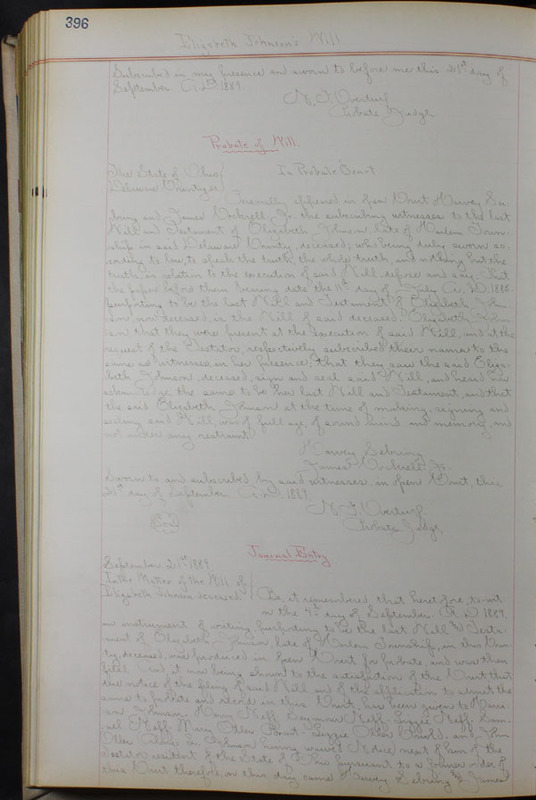 396
Elizabeth Johnson's Will
Subscribed in my presence and sworn to before me this 21st day of
September A.D. 1889.
Probate Judge
Probate of Will.
The State of Ohio
Delaware County ss
In Probate Court
Personally appeared in Open Court Harvey
and James Jr. the subscribing witnesses to the last
Will and Testament of Elizabeth Johnson late of Harlem Town-
ship in said Delaware County, deceased, who being duly sworn ac-
cording to law, to speak the truth, the whole truth, and nothing but the
truth, in relation to the execution of said Will, depose and say: That
the paper before them bearing date the 11th day of July A.D.
purporting to be the last Will and Testament of Elizabeth John-
son now deceased, is the Will of said deceased Elizabeth John-
son that they were present at the execution of said Will, and at the
request of the Testator, respectively subscribed their names to the
same as witnesses, in her presence, that they saw the said Eliza-
beth Johnson, deceased, sign and seal said Will, and heard her
acknowledge the same to be her last Will and Testament, and that
the said Elizabeth Johnson at the time of making, signing and
sealing said Will, was of full age, of sound mind and memory, and
not under any restraint.
Harvey
James Jr.
Sworn to and subscribed by said witnesses, in Open Court, this
21st day of September A.D. 1889.
Seal
Probate Judge
Journal Entry
September 21st 1889.
In the Matter of the Will of
Elizabeth Johnson deceased.
Be it remembered, that heretofore, to wit
on the 4th day of September A.D. 1889,
an instrument of writing purporting to be the last Will & Testa-
ment of Elizabeth Johnson late of Harlem Township, in this Coun-
ty, deceased, was produced in Open Court for probate, and was then
filed. And it now being shown to the satisfaction of the Court that
due notice of the filing of said Will and of the application to admit the
same to probate and record in this Court, has been given to
Johnson, Neff, Seymour Neff, Lizzie Neff, Sam-
uel Neff, Mary
having waived Notice) next of kin of the
testator resident of the State of Ohio pursuant to a former order of
this Court therefore, on this day came Harvey & James